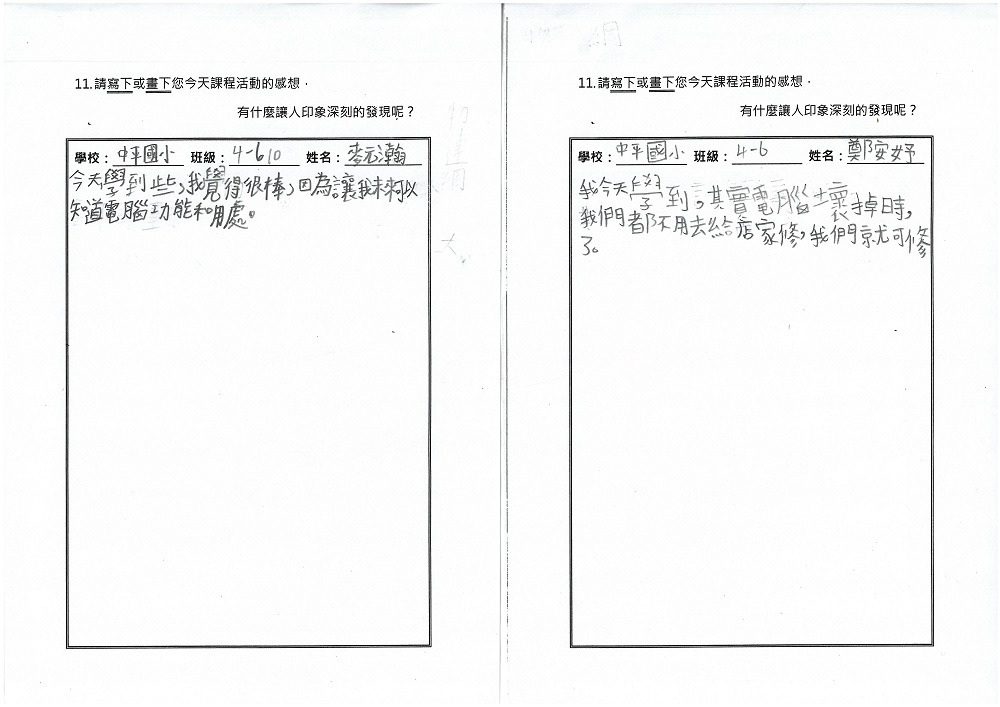 11.請寫下或畫下您今天課程活動的感想，
有什麼讓人印象深刻的發現呢？
學校：中平國小 班級：4-6 10 姓名：麥元瀚
今天學到些，我覺得很棒，因為讓我未來可以
知道電腦功能和用處。
11.請寫下或畫下您今天課程活動的感想，
有什麼讓人印象深刻的發現呢？
學校：中平國小 班級：4-6 姓名：鄭安妤
我今天學到，其實電腦壞掉時，
我們都不用去給店家修，我們就可修
了。